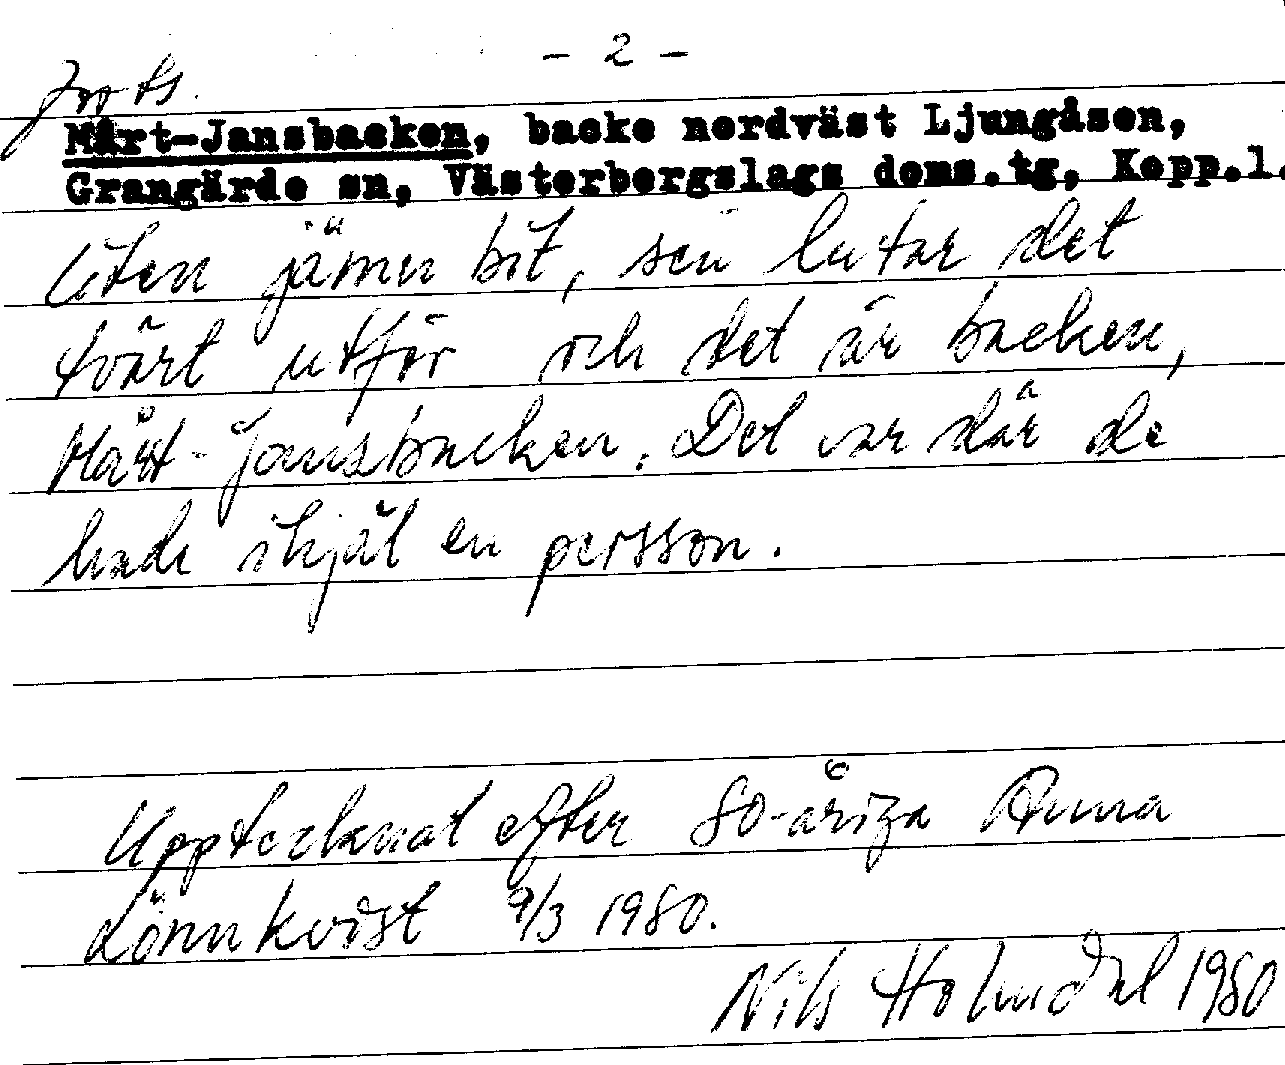 - 2 -
forts.
Mårt-Jansbacken, backe nordväst Ljungåsen,
Grangärde sn, Västerbergslags doms.tg, Kopp.l.
liten jämn bit, sen lutar det
tvärt utför och det är backen,
Mårt-Jansbacken. Det var där de
hade ihjäl en persson.
Upptecknat efter 80-åriga Anna
Lönnkvist 9/3 1980.
Nils Holmdal 1980